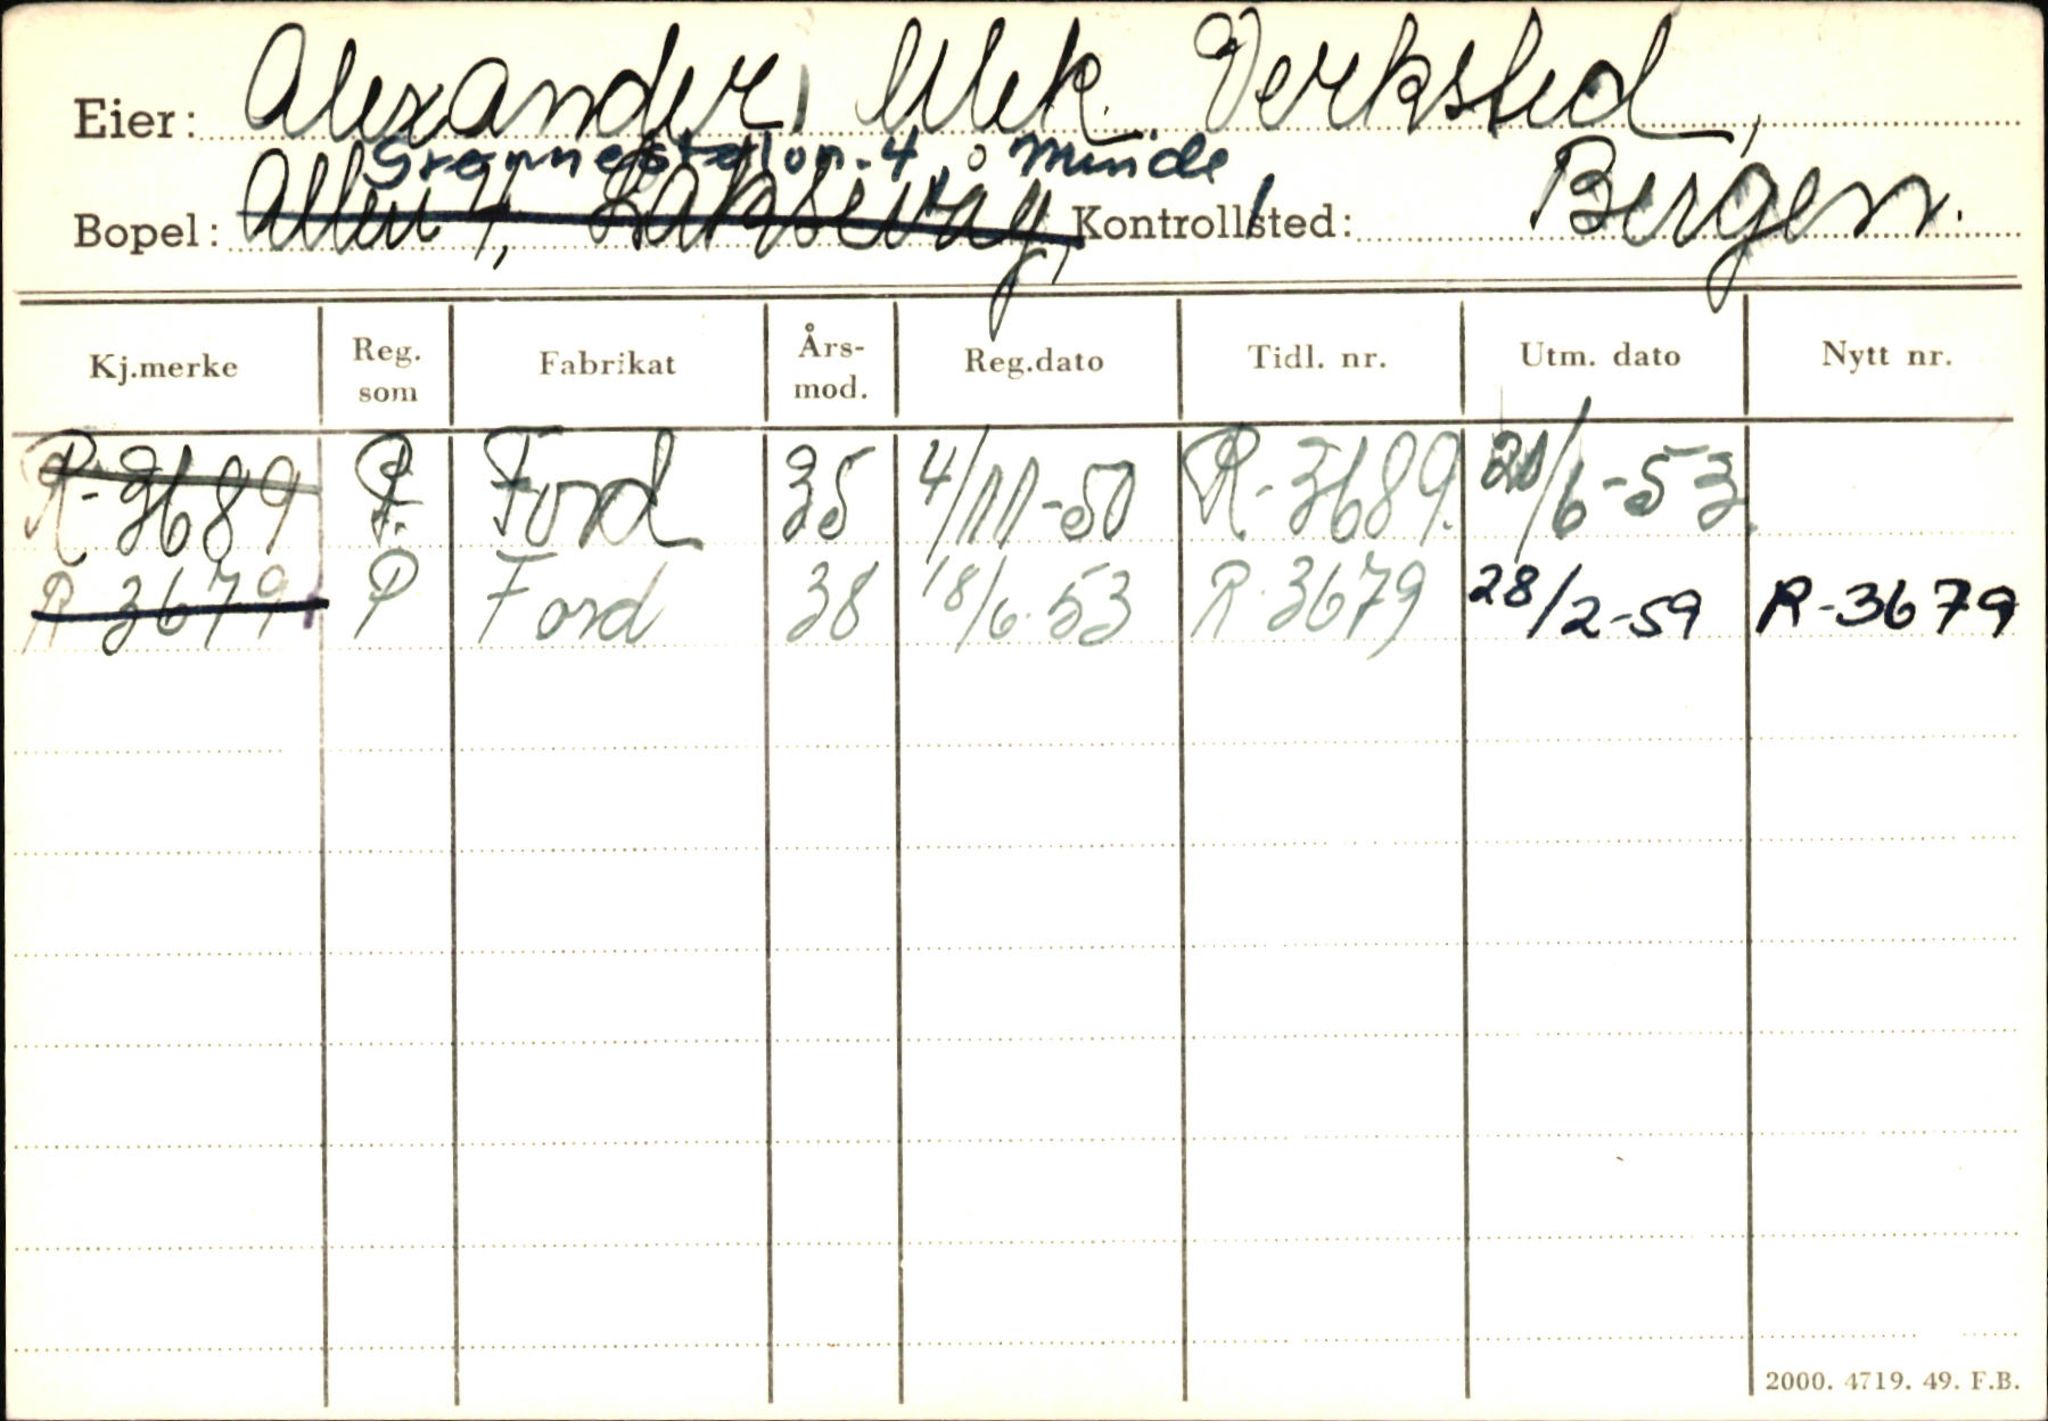 Eier: Alexander, Mek. Verksted,
Minde
Bopel: Alleen 4, Laksevåg, Kontrollsted: Bergen.
Kj.merke Reg. som Fabrikat Års-mod. Reg.dato Tidl. nr. Utm. dato Nytt nr.
R-3689 P. Ford 35 4/11-50 R-3689. /6-53.
R-3679 P Ford 38 18/6-53 R-3679 28/2-59 R-3679
2000. 4719. 49. F.B.